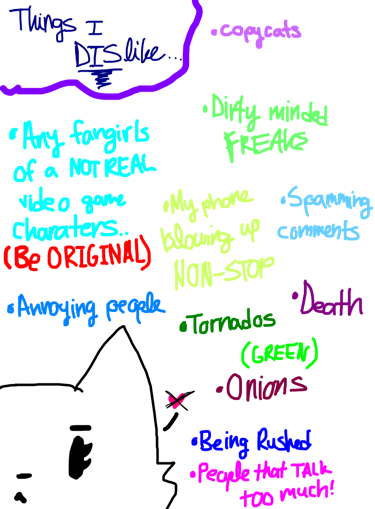 Things I
DISlike...
•copycats
•Dirty minded
FREAKS
•Any fangirls
of a NOT REAL
video game
charaters..
(Be ORIGINAL)
•My phone
blowing up
NON-STOP
•Spamming
comments
•Annoying people
•Death
•Tornados
(GREEN)
•Onions
•Being Rushed
•People that TALK
too much!